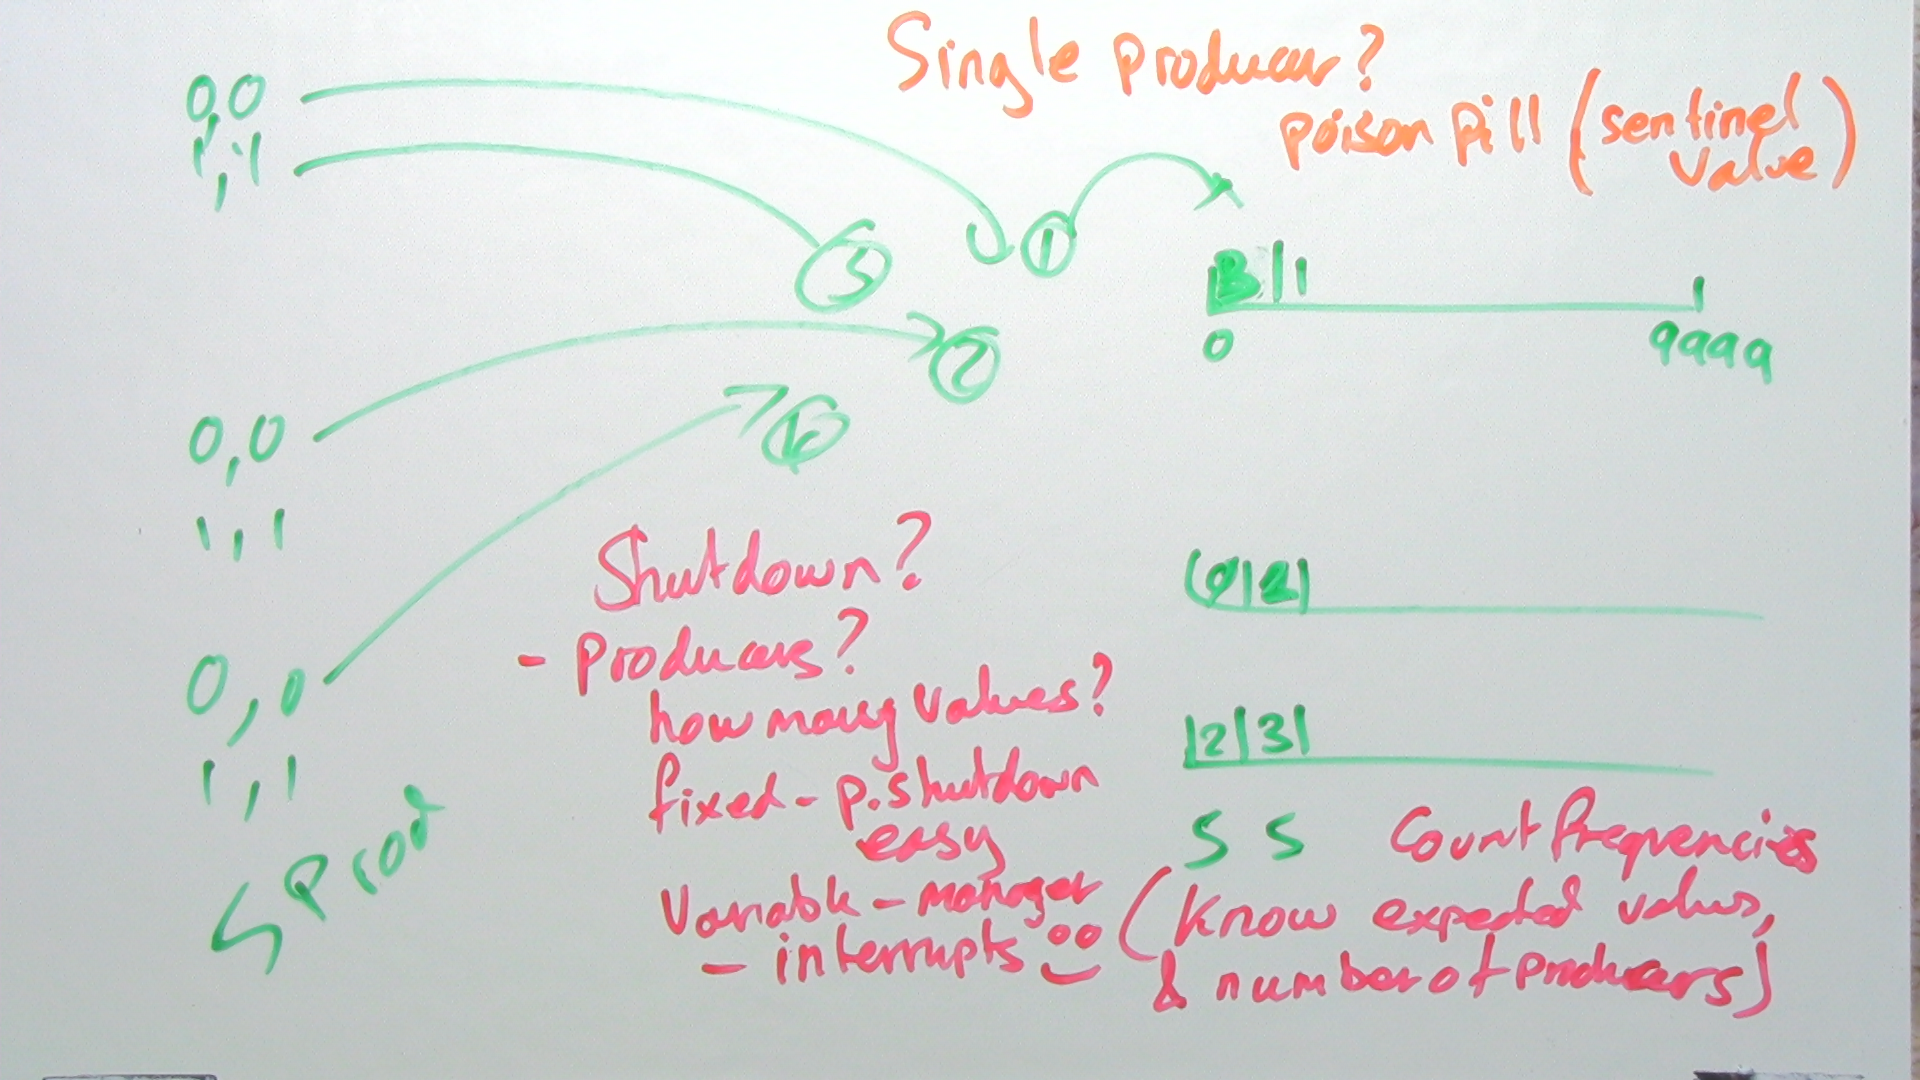 Single producer?
poison pill (sentinel
value)
0,0
1,1
5
1
2
B
0
9999
0,0
1,1
Shutdown?
- Producers?
how many values?
fixed - p. shutdown
easy
Variable - manager
- interrupts
0,0
1,1
5 Prod
0|2|
|2|3|
5 5
Count frequencies
(know expected values,
& number of producers)